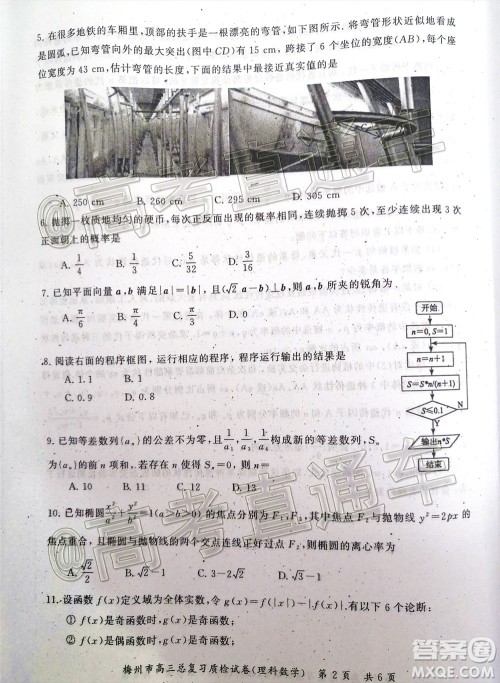 5. 在很多地铁的车厢里,顶部的扶手是一根漂亮的弯管,如下图所示. 将弯管形状近似地看成
是圆弧,已知弯管向外的最大突出(图中 CD)有 15 cm, 跨接了 6 个坐位的宽度(AB), 每个座
位宽度为 43 cm, 估计弯管的长度,下面的结果中最接近真实值的是
A. 250 cm B. 260 cm C. 295 cm D. 305 cm
6. 抛掷一枚质地均匀的硬币,每次正反面出现的概率相同,连续抛掷 5 次,至少连续出现 3 次
正面朝上的概率是
A. 1/4 B. 1/3 C. 5/32 D. 3/16
7. 已知平面向量 a,b 满足|a|=|b|,且(√2 a-b)⊥b,则 a,b 所夹的锐角为
A. π/6 B. π/5 C. π/4 D. 0
8. 阅读右面的程序框图,运行相应的程序,程序运行输出的结果是
A. 1.1 B. 1
C. 0.9 D. 0.8
开始
n=0,S=1
n=n+1
S=S*n/(n+1)
S≤0.1
输出n*S
结束
9. 已知等差数列{aₙ}的公差不为零,且
构成新的等差数列,Sₙ
为{aₙ}的前 n 项和,若
A. 10 B. 11 C. 12 D. 13
10. 已知椭圆x²/a²+y²/b²=1(a>b>0)的焦点分别为 F₁,F₂,其中焦点 F₂ 与抛物线 y²=2px 的
焦点重合,且椭圆与抛物线的两个交点连线正好过点 F₂,则椭圆的离心率为
A. √2/2 B. √2-1 C. 3-2√2 D. √3-1
11. 设函数 f(x)定义域为全体实数,令 g(x)=f(|x|)-|f(x)|. 有以下 6 个论断:
① f(x)是奇函数时,g(x)是奇函数;
② f(x)是偶函数时,g(x)是奇函数;
梅州市高三总复习质检试卷(理科数学) 第 2 页 共 6 页
@高考直通车
@高考直通车